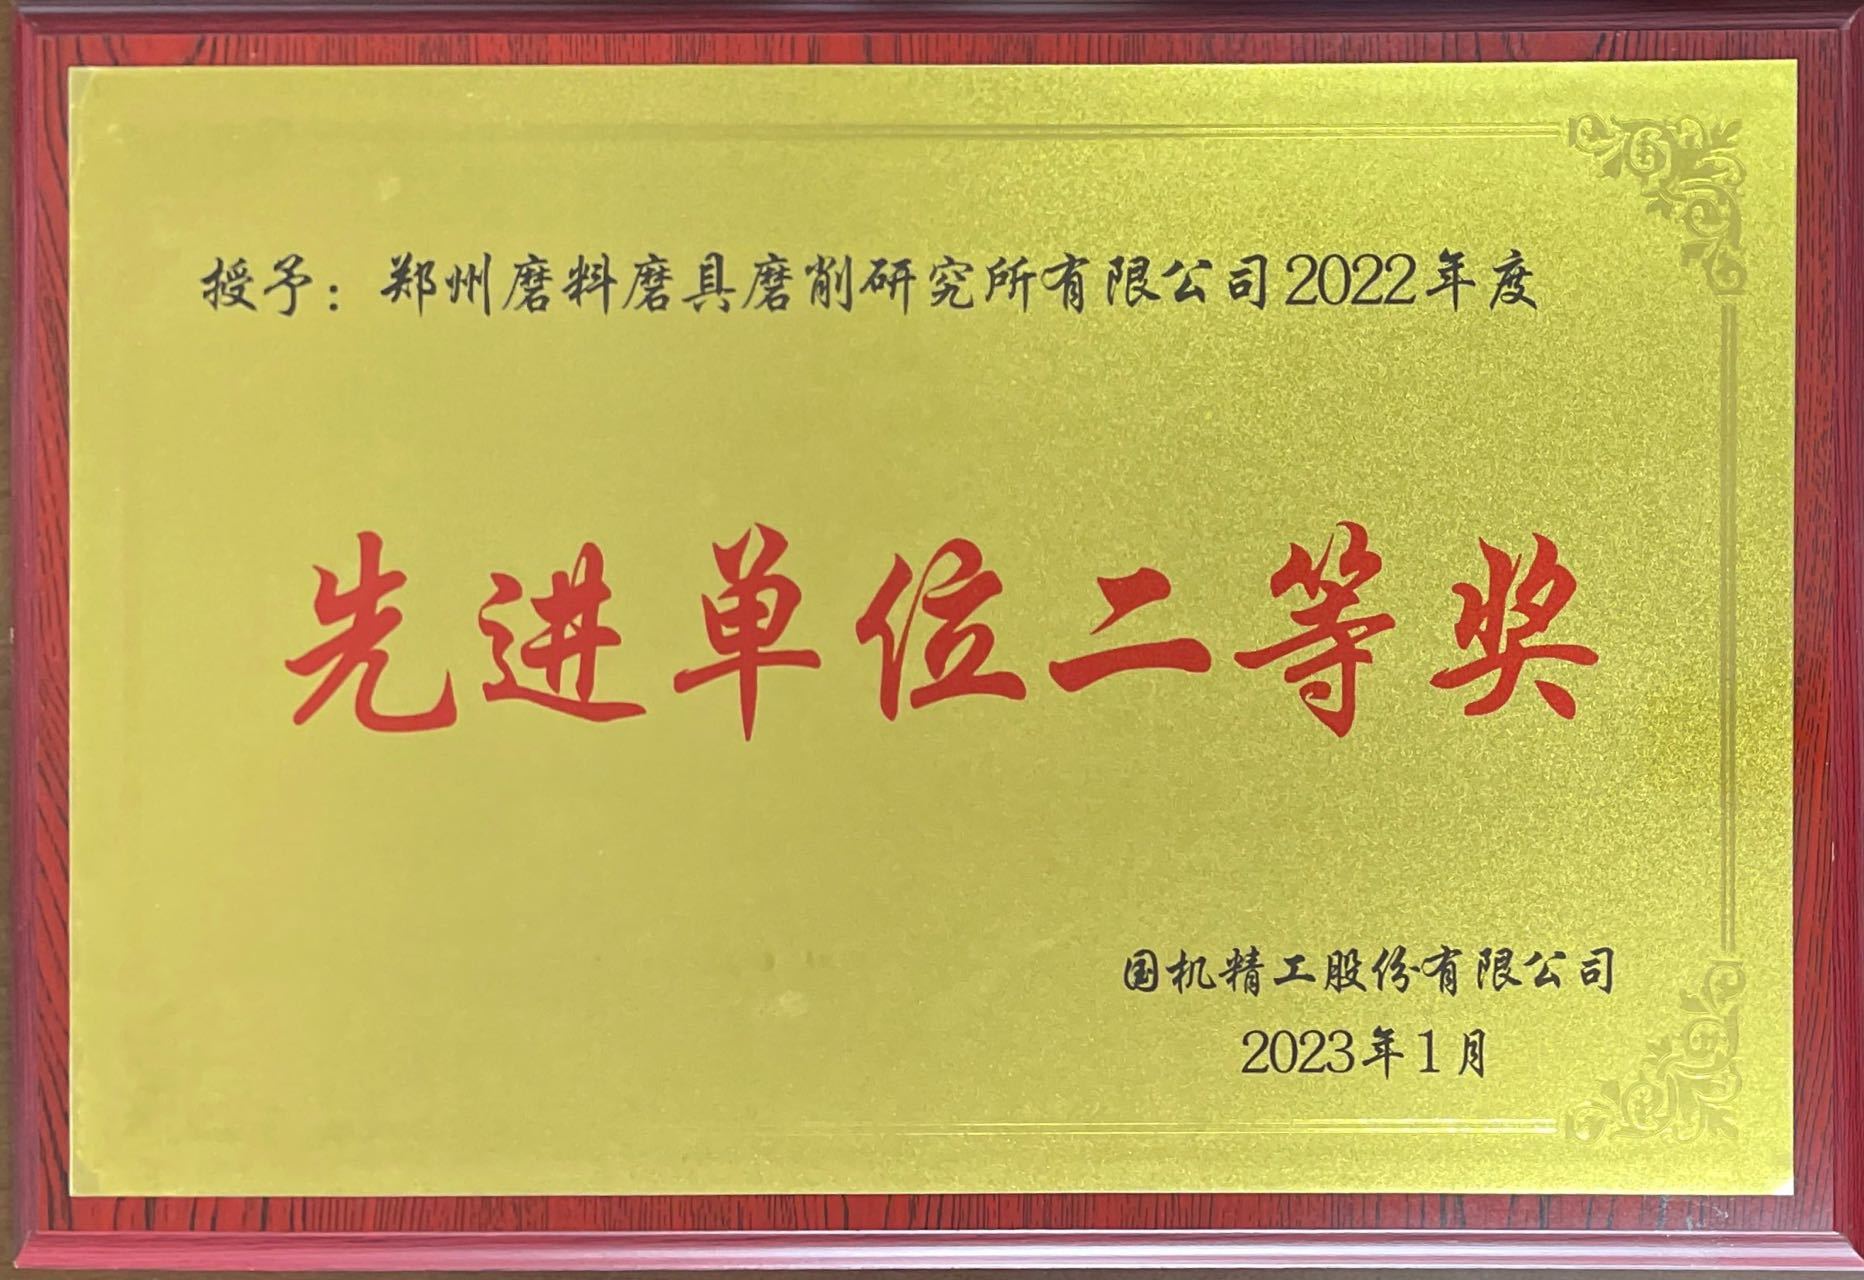 授予：郑州磨料磨具磨削研究所有限公司2022年度
先进单位二等奖
国机精工股份有限公司
2023年1月